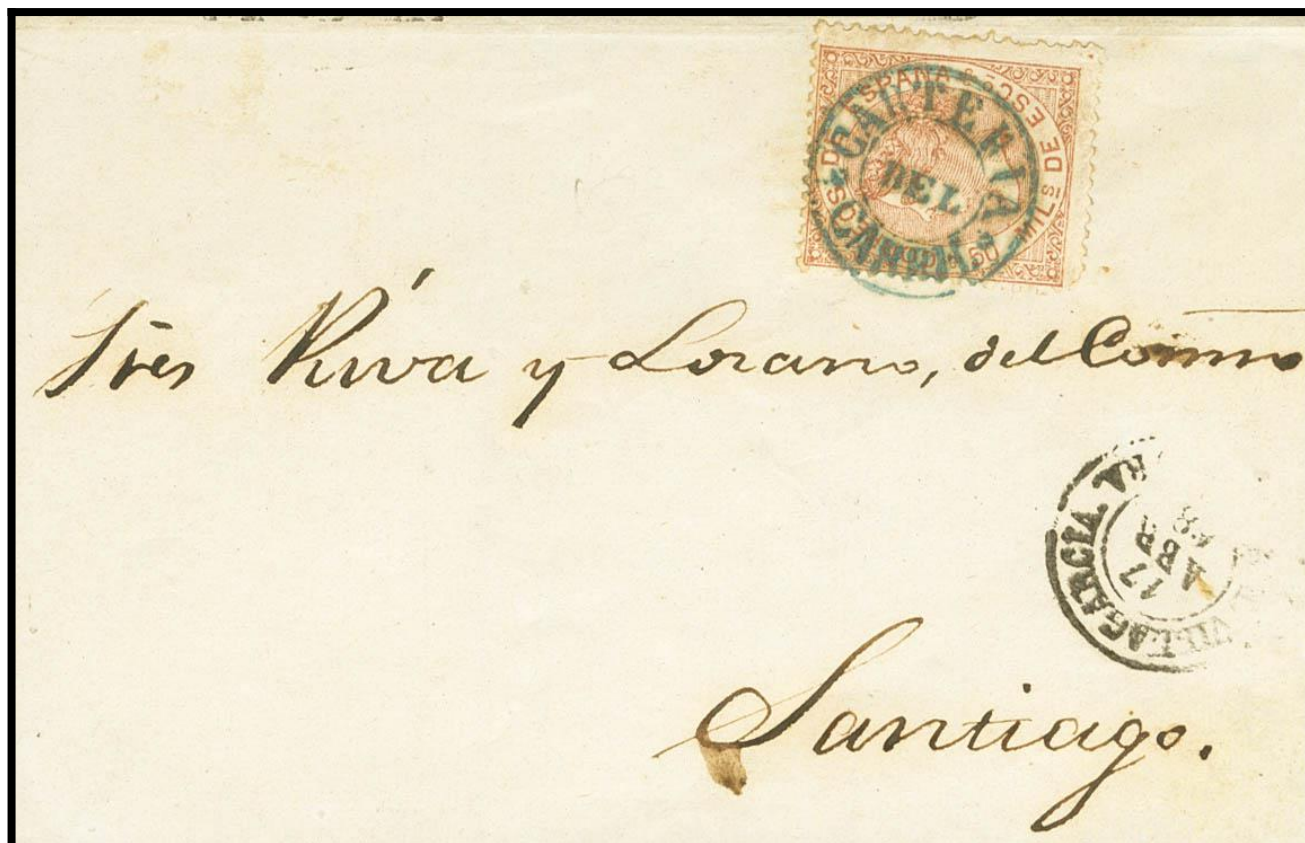 CORREOS DE ESPAÑA 50 MILs DE ESCo
CARTERIA DEL CARRIL
Sres Riva y Lozano, del Comro
VILLAGARCIA.
17
ABR
68
Santiago.